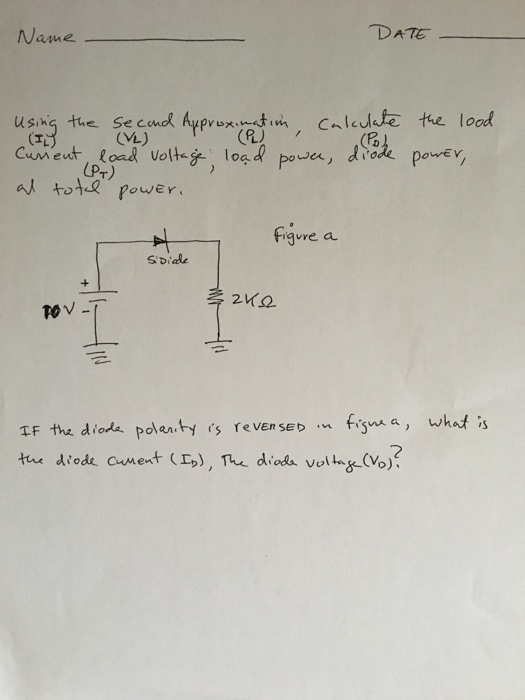 Name
DATE
Using the second Approximation, Calculate the load
(IL) (VL) (PL) (PD)
Current load voltage, load power, diode power,
(PT)
al total power.
figure a
Si Diode
+
10V -
2KΩ
IF the diode polarity is REVERSED in figure a, what is
the diode current (ID), The diode voltage (VD)?